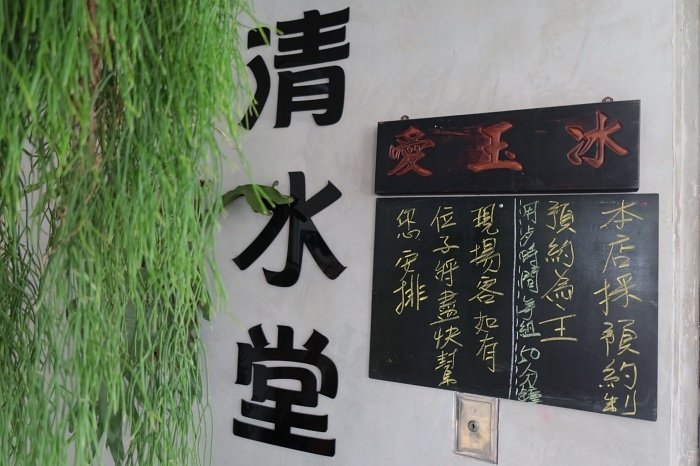 清水堂
愛玉冰
本店採預約制
預約為主
用歺時間每組50分鐘
現場客如有
位子將盡快幫
您安排